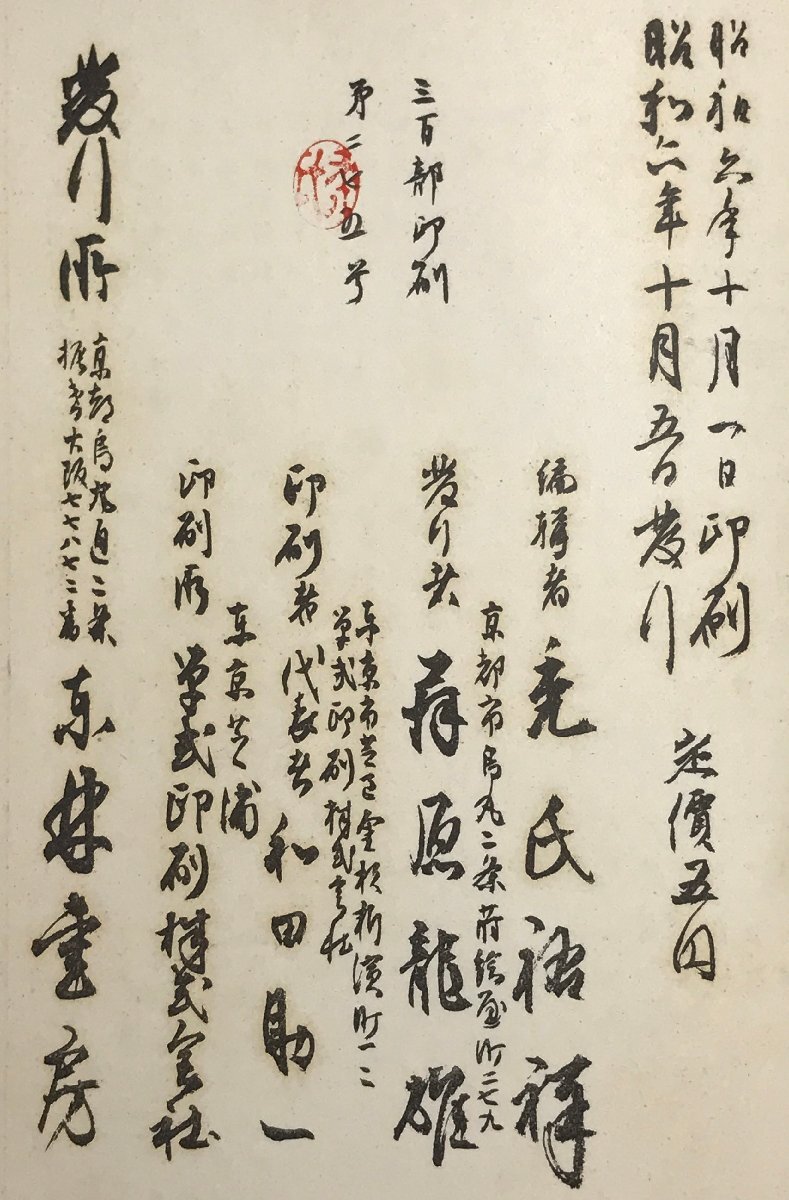 昭和六年十月一日印刷
昭和六年十月五日發行
定價五円
三百部印刷
第二七五号
編輯者 禿氏祐祥
京都市烏丸二条蒔絵屋町二七九
發行者 藤原龍雄
東京市芝区金杉新濱町一二
単式印刷株式会社
印刷者 代表者 和田助一
東京芝浦
印刷所 単式印刷株式会社
發行所
京都烏丸通二条
振替大阪七七八七二番
東林書房